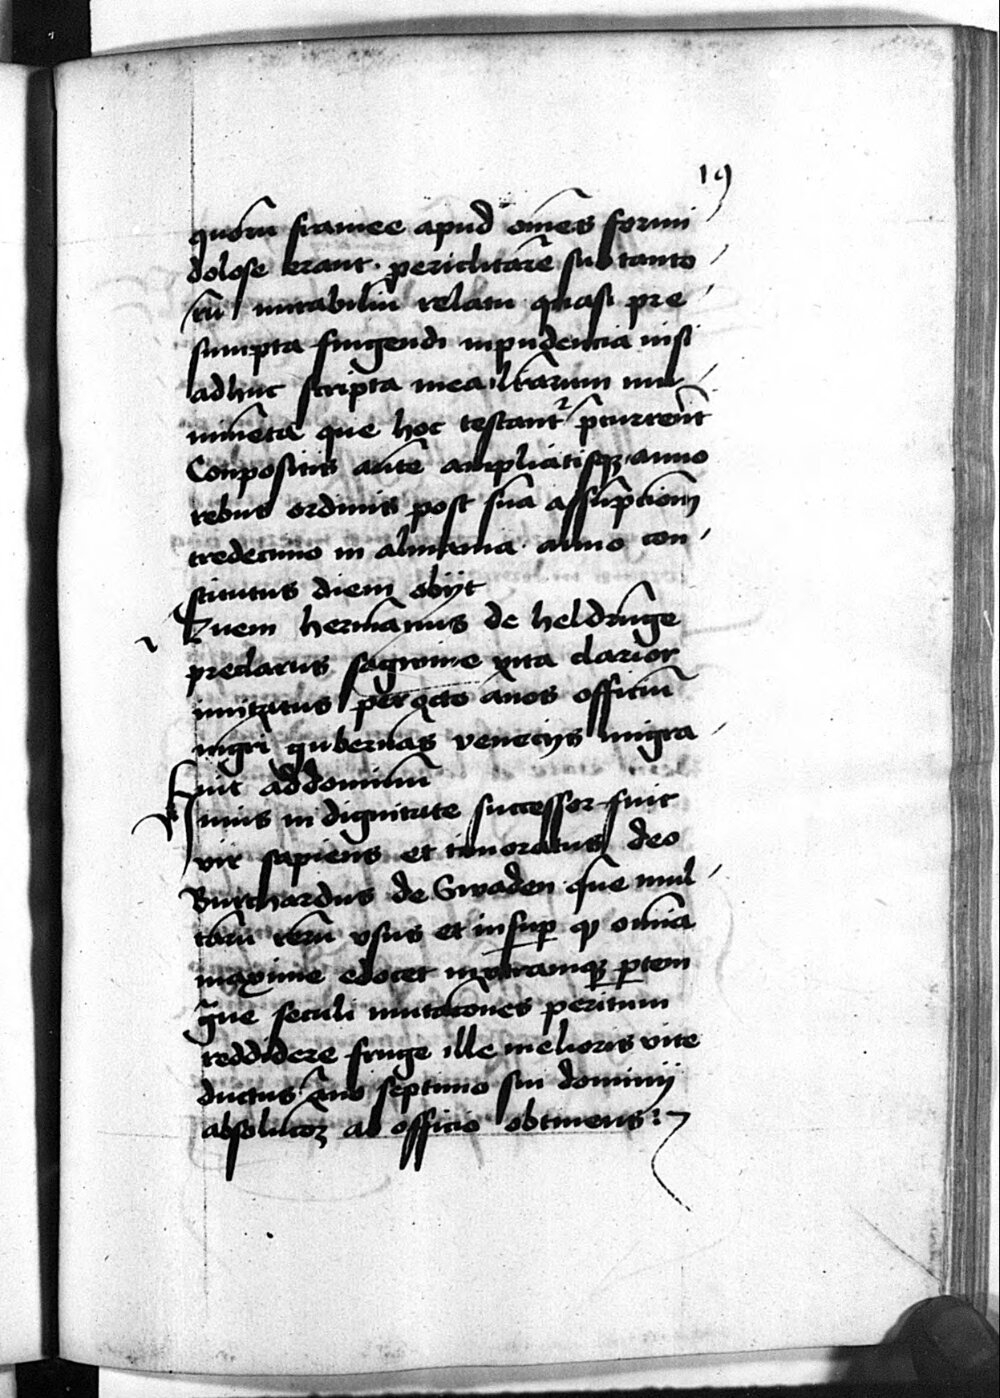 19
quoru͂ framee apud om͂es formi
dolose erant. periclitare͂ sub tanto
ru͂ mirabiliu͂ relatu quasi pre
sumpta fingendi inpudencia nisi
adhuc scripta mea l͂rarum mu
nime͂ta que hoc testant᷑ p͂currere͂t
Conpositis aute͂ ampliatisqꝫ anno
rebus ordinis post sua͂ assu͂pcionem
tredecimo in almania anno con
stitutus diem obijt
Quem herma͂nus de heldru͂ge
preclarus sagwine vita clarior
imitatus per octo a͂nos officiu͂
mgri guberna͂s venecijs migra
uit ad dominum
Huius in dignitate successor fuit
vir sapiens et timoratus deo
Burchardus de Swaden que͂ mul
taru͂ reru͂ vsus et insuꝑ qꝫ omnia
maxime edocet in vtramqꝫ ꝑtem
g͂ue seculi mutac͂ones peritum
reddidere fruge ille melioris vite
ductus a͂no septimo sui dominij
absoluc͂oꝫ ab officio obtinens